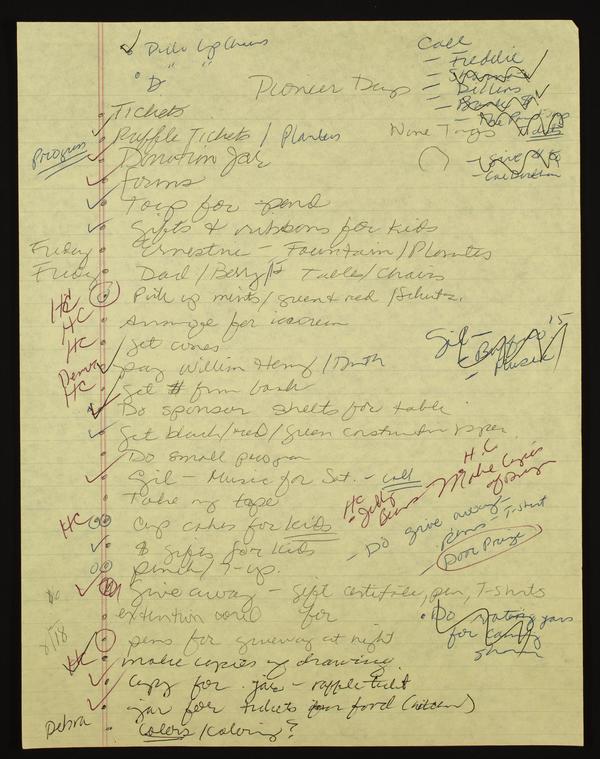 Pick Up Chairs
" "
Call
- Freddie
- Dillons
Pioneer Days
Tickets
Raffle Tickets / Planters
None Tags
Tickets
Progress
Donation Jar
- Give
Forms
Toip for
Gifts & ribbons for kids
Friday Ernestine - Fountain / Planters
Friday Dad / Tables / Chairs
HC Pick up mints / green & red /
HC Arrange for icecream
HC Get cones
Gil -
- Buffalo
- Music
Debra pay William Henry /
HC Get $ from bank
Do sponsor sheets for table
Get black/red/green construction paper
Do small program
Gil - Music for Sat. - call
H.C
Make Copies
of
HC
- Jelly
Beans
Take my tape
HC Cup cakes for kids
- Do give away -
pens - T-shirt
- Door Prize
$ gifts for kids
punch / 7-up.
Give away - gift certificate, pen, T-shirts
extention cord for
8/18 pens for giveaway at night
• Do voting jars
for
HC make copies of drawing.
copy for jar - raffle ticket
jar for tickets for food (kitchen)
Debra Colors / Coloring?